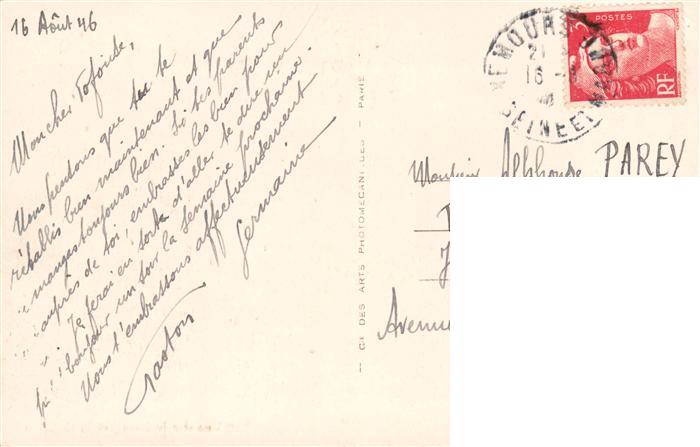 16 Août 46
Mon cher Fofonse,
Nous pensons que tu te
rétablis bien maintenant et que
manges toujours bien. Si tes parents
auprès de toi embrasses les bien pour
Je ferai en sorte d'aller te dire un
p'tit bonjour un soir la semaine prochaine.
Nous t'embrassons affectueusement
Gaston Germaine
CIE DES ARTS PHOTOMECANIQUES — PARIS
NEMOURS
21
16
46
SEINE ET MARNE
POSTES
3F
RF
Monsieur Alphonse PAREY
Avenue